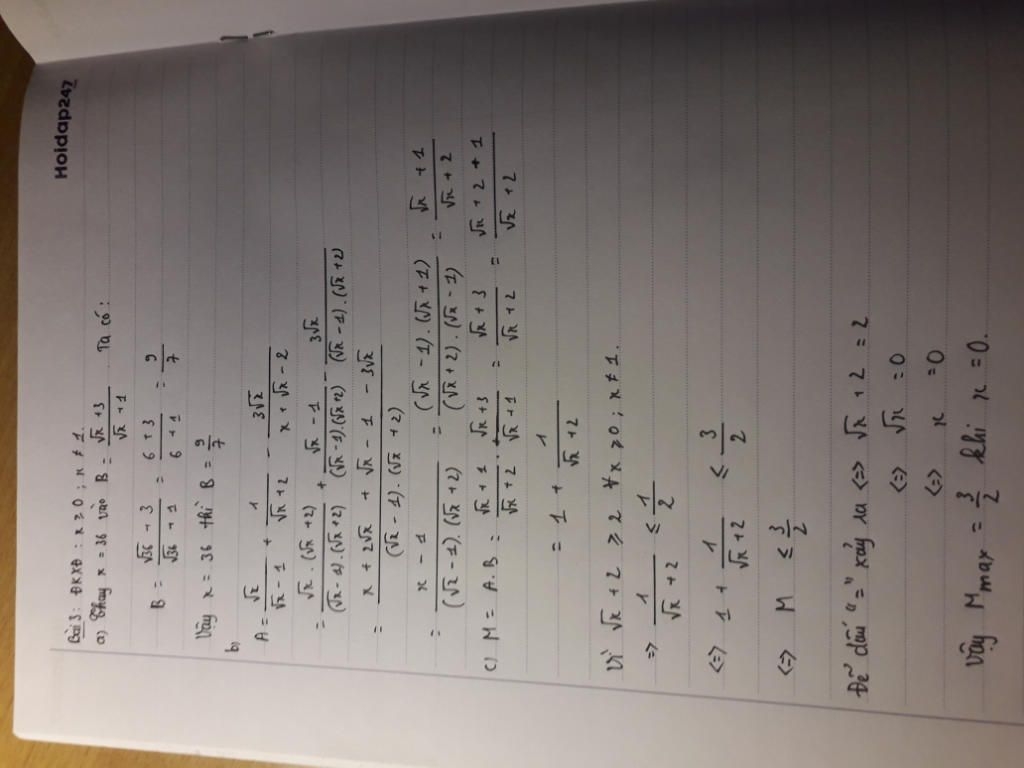 Hoidap247
Bài 3: ĐKXĐ: x ≥ 0; x ≠ 1
a) Thay x = 36 vào B = (√x + 3)/(√x + 1). Ta có:
B = (√36 + 3)/(√36 + 1) = (6 + 3)/(6 + 1) = 9/7
Vậy x = 36 thì B = 9/7
b)
A = √x/(√x - 1) + 1/(√x + 2) - 3√x/(x + √x - 2)
= √x.(√x + 2)/((√x - 1).(√x + 2)) + (√x - 1)/((√x - 1)(√x + 2)) - 3√x/((√x - 1).(√x + 2))
= (x + 2√x + √x - 1 - 3√x)/((√x - 1).(√x + 2))
= (x - 1)/((√x - 1).(√x + 2)) = ((√x - 1).(√x + 1))/((√x + 2).(√x - 1)) = (√x + 1)/(√x + 2)
c) M = A.B = (√x + 1)/(√x + 2) . (√x + 3)/(√x + 1) = (√x + 3)/(√x + 2) = (√x + 2 + 1)/(√x + 2)
= 1 + 1/(√x + 2)
Vì √x + 2 ≥ 2 ∀x ≥ 0; x ≠ 1.
=> 1/(√x + 2) ≤ 1/2
<=> 1 + 1/(√x + 2) ≤ 3/2
<=> M ≤ 3/2
Để dấu "=" xảy ra <=> √x + 2 = 2
<=> √x = 0
<=> x = 0
Vậy Mmax = 3/2 khi x = 0.